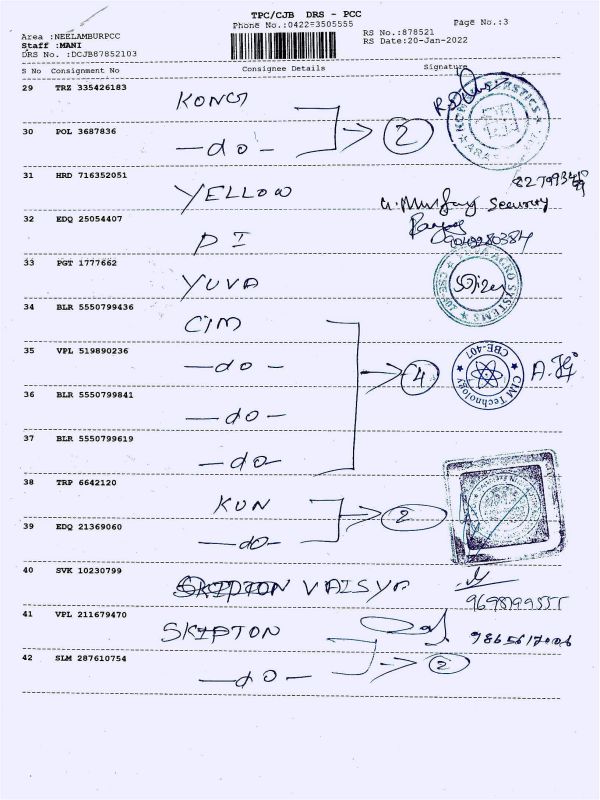 TPC/CJB DRS - PCC
Phone No.:0422-3505555
Page No.:3
Area :NEELAMBURPCC
Staff :MANI
DRS No. :DCJB87852103
RS No.:878521
RS Date:20-Jan-2022
S No Consignment No Consignee Details Signature
29 TRZ 335426183 KONGI
30 POL 3687836 —do— 2
31 HRD 716352051 YELLOW
Security
32 EDQ 25054407 PI
33 PGT 1777662 YUVA
AGRO SYSTEMS
34 BLR 5550799436 CIM
35 VPL 519890236 —do— 4
CIM Technology CBE-407
36 BLR 5550799841 —do—
37 BLR 5550799619 —do—
38 TRP 6642120 KUN
2
39 EDQ 21369060 —do—
40 SVK 10230799 SKIPTON VAISYA
41 VPL 211679470 SKIPTON
42 SLM 287610754 —do— 2